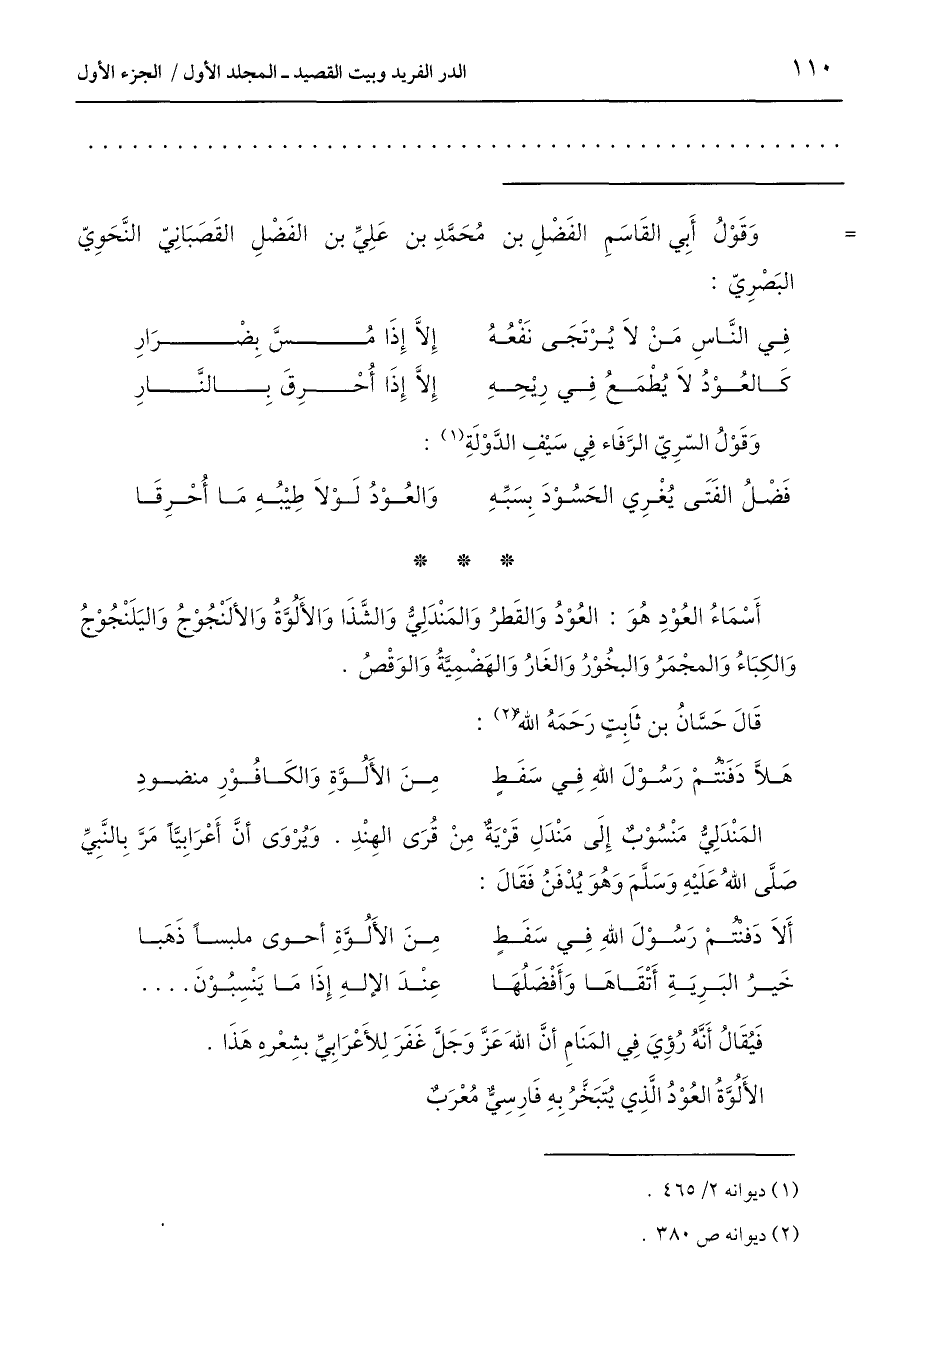 ١١٠ الدر الفريد وبيت القصيد ـ المجلد الأول / الجزء الأول
. . . . . . . . . . . . . . . . . . . . . . . . . . . . . . . . . . . . . . . . . . . . . . . . . . .
= وَقَوْلُ أَبِي القَاسَمِ الفَضْلِ بن مُحَمَّدِ بن عَلِيِّ بن الفَضْلِ القَصَبَانِيّ النَّحَوِيّ
البَصْرِيّ :
فِي النَّاسِ مَنْ لاَ يُرْتَجَى نَفْعُهُ إِلاَّ إِذَا مُسَّ بِضْرَارِ
كَالعُوْدُ لاَ يُطْمَعُ فِي رِيْحِهِ إِلاَّ إِذَا أُحْرِقَ بِالنَّارِ
وَقَوْلُ السّرِيّ الرَّفَاء فِي سَيْفِ الدَّوْلَةِ(١) :
فَضْلُ الفَتَى يُغْرِي الحَسُوْدَ بِسَبِّهِ وَالعُوْدُ لَوْلاَ طِيْبُهِ مَا أُحْرِقَا
* * *
أَسْمَاءُ العُوْدِ هُوَ : العُوْدُ وَالقَطرُ وَالمَنْدَلِيُّ وَالشَّذَا وَالأَلُوَّةُ وَالأَلنْجُوْجُ وَاليَلَنْجُوْجُ
وَالكِبَاءُ وَالمجْمَرُ وَالبخُوْرُ وَالغَارُ وَالهَضْمِيَّةُ وَالوَقْصُ .
قَالَ حَسَّانُ بن ثَابِتٍ رَحَمَهُ الله(٢) :
هَلاَّ دَفَنْتُمْ رَسُوْلَ اللهِ فِي سَفَطٍ مِنَ الأَلُوَّةِ وَالكَافُوْرِ منضودِ
المَنْدَلِيُّ مَنْسُوْبٌ إِلَى مَنْدَلِ قَرْيَةٌ مِنْ قُرَى الهِنْدِ . وَيُرْوَى أنَّ أَعْرَابِيَّاً مَرَّ بِالنَّبِيِّ
صَلَّى اللهُ عَلَيْهِ وَسَلَّمَ وَهُوَ يُدْفَنُ فَقَالَ :
أَلاَ دَفنْتُمْ رَسُوْلَ اللهِ فِي سَفَطٍ مِنَ الأَلُوَّةِ أحوى ملبساً ذَهَبا
خَيرُ البَريَةِ أَتْقَاهَا وَأَفْضَلُهَا عِنْدَ الإلهِ إِذَا مَا يَنْسِبُوْنَ ....
فَيُقَالُ أَنَّهُ رُؤِيَ فِي المَنَامِ أنَّ اللهَ عَزَّ وَجَلَّ غَفَرَ لِلأَعْرَابِيِّ بشِعْرِهِ هَذَا .
الأَلُوَّةُ العُوْدُ الَّذِي يُتَبَخَّرُ بِهِ فَارِسِيٌّ مُعْرَبٌ
(١) ديوانه ٢/ ٤٦٥ .
(٢) ديوانه ص ٣٨٠ .